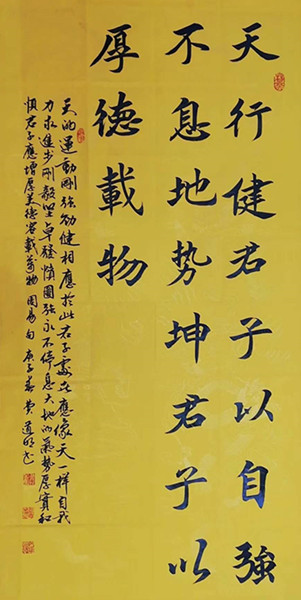 天行健君子以自強
不息地势坤君子以
厚德載物
天的運動剛強勁健相應於此君子處世應像天一樣自我
力求進步剛毅坚卓發憤圖強永不停息大地的氣势厚實和
順君子應增厚美德容載萬物周易句庚子春費道明书